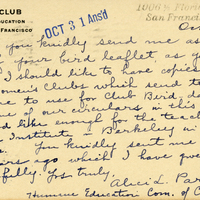 CLUB
UCATION
FRANCISCO
OCT 31 Ans'd
1006 Flori
San Francisc
you kindly send me as
your bird leaflet, as y
I should like to have copies
omen's Clubs which send to
me to use for Club Bird, do
e of our circulars in this
d like enough for the teach
Institute Berkeley in
You kindly sent me
ears ago which I have give
fully. Yrs truly,
Alice L. Par
Humane Education Com. of C